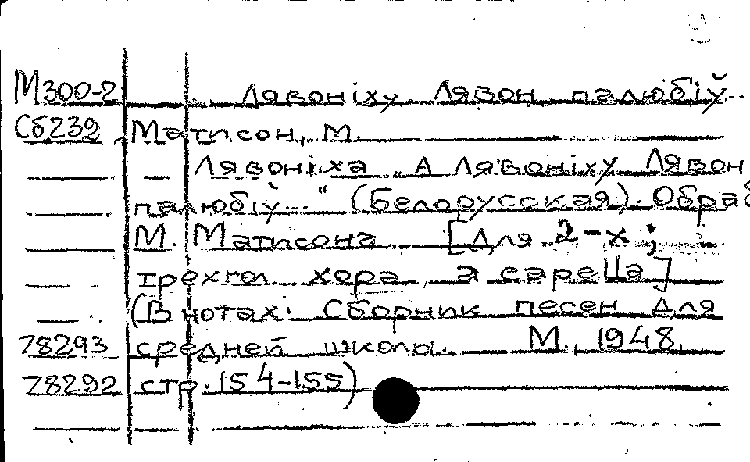 М300-2 Лявоніху Лявон палюбіў...
Сб239 Матисон, М.
Лявоніха „А Лявоніху Лявон
палюбіў..." (Белорусская). Обраб
М. Матисона [Для 2-х;
трехгол. хора a capella]
(В нотах: Сборник песен для
78293 средней школы. М., 1948,
78292 стр. 154-155)